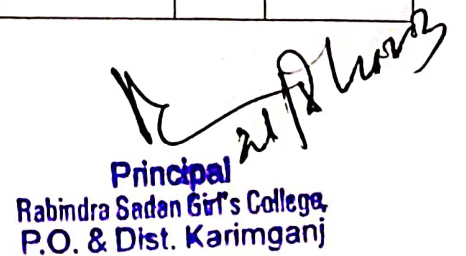 Principal
Rabindra Sadan Girl's College,
P.O. & Dist. Karimganj